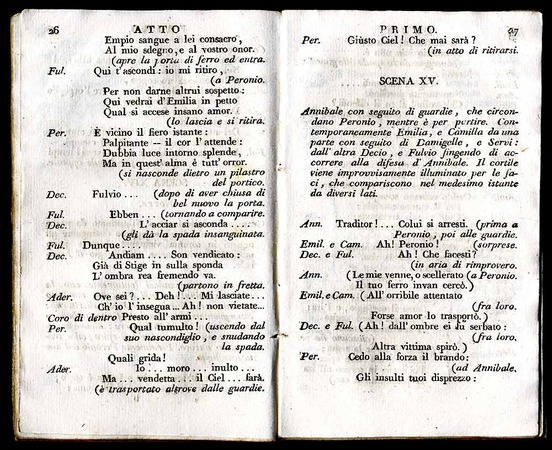 26 ATTO
Empio sangue a lei consacro,
Al mio sdegno, e al vostro onor.
(apre la porta di ferro ed entra.
Ful. Qui t'ascondi: io mi ritiro,
(a Peronio.
Per non darne altrui sospetto:
Qui vedrai d'Emilia in petto
Qual si accese insano amor.
(lo lascia e si ritira.
Per. È vicino il fiero istante:
Palpitante -- il cor l'attende:
Dubbia luce intorno splende,
Ma in quest'alma è tutt'orror.
(si nasconde dietro un pilastro
del portico.
Dec. Fulvio ... (dopo di aver chiusa di
bel nuovo la porta.
Ful. Ebben ... (tornando a comparire.
Dec. L'acciar si asconda ....
(gli dà la spada insanguinata.
Ful. Dunque ....
Dec. Andiam .... Son vendicato:
Già di Stige in sulla sponda
L'ombra rea fremendo va
(partono in fretta.
Ader. Ove sei? ... Deh! ... Mi lasciate...
Ch'io l'insegua ... Ah! non vietate...
Coro di dentro Presto all'armi ...
Per. Qual tumulto! (uscendo dal
suo nascondiglio, e snudando
la spada.
Quali grida!
Ader. Io ... moro ... inulto ...
Ma ... vendetta ... il Ciel ... farà.
(è trasportato altrove dalle guardie.
PRIMO. 27
Per. Giusto Ciel! Che mai sarà?
(in atto di ritirarsi.
SCENA XV.
Annibale con seguito di guardie, che circon-
dano Peronio, mentre è per partire. Con-
temporaneamente Emilia, e Camilla da una
parte con seguito di Damigelle, e Servi:
dall'altra Decio, e Fulvio fingendo di ac-
correre alla difesa d'Annibale. Il cortile
viene improvvisamente illuminato per le fa-
ci, che compariscono nel medesimo istante
da diversi lati.
Ann. Traditor! ... Colui si arresti. (prima a
Peronio, poi alle guardie.
Emil. e Cam. Ah! Peronio! (sorprese.
Dec. e Ful. Ah! Che facesti?
(in aria di rimprovero.
Ann. (Le mie vene, o scellerato (a Peronio.
Il tuo ferro invan cercò.)
Emil. e Cam. (All'orribile attentato
(fra loro.
Forse amor lo trasportò.)
Dec. e Ful. (Ah! dall'ombre ei fu serbato:
(fra loro.
Altra vittima spirò.)
Per. Cedo alla forza il brando:
(ad Annibale.
Gli insulti tuoi disprezzo: